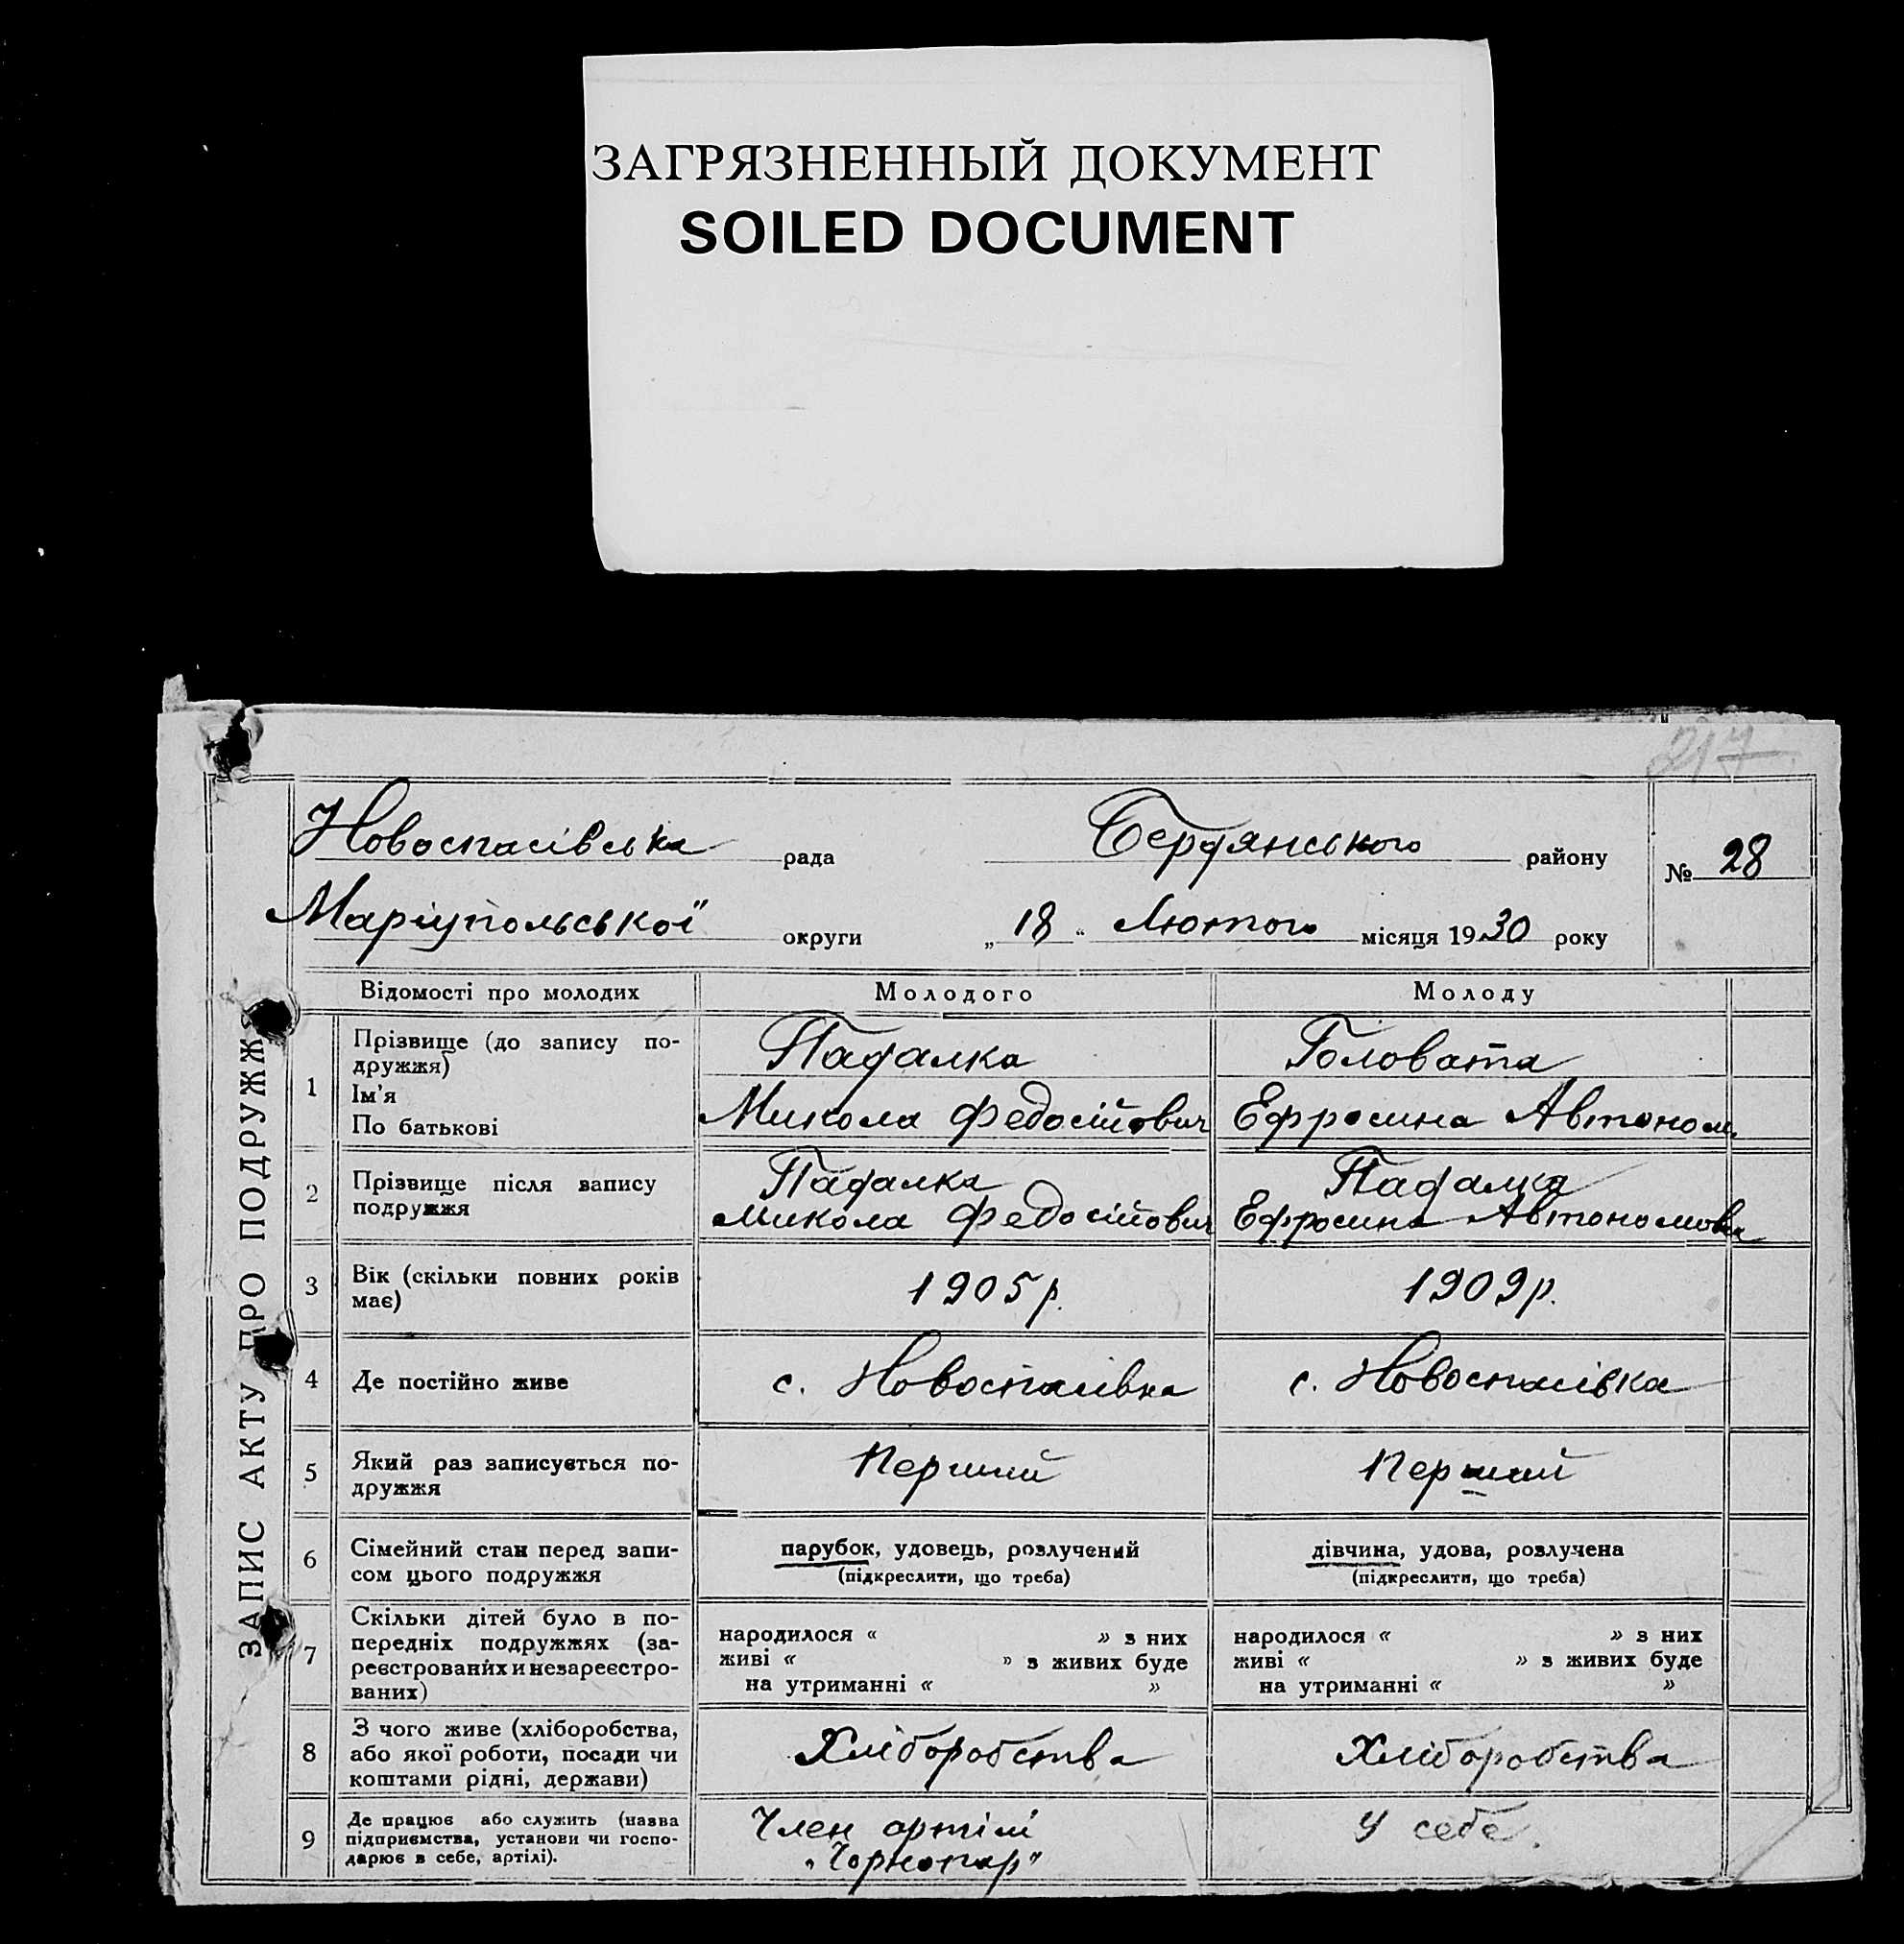 ЗАГРЯЗНЕННЫЙ ДОКУМЕНТ
SOILED DOCUMENT
217
ЗАПИС АКТУ ПРО ПОДРУЖЖЯ
Новоспасівська рада Бердянського району № 28
Маріупольської округи „18“ Лютого місяця 1930 року
Відомості про молодих Молодого Молоду
1 Прізвище (до запису по-
дружжя) Падалка Головата
Ім'я
По батькові Микола Федосійович Ефросина Автоном.
2 Прізвище після запису
подружжя Падалка Падалка
Микола Федосійович Ефросина Автономовна
3 Вік (скільки повних років
має) 1905 р. 1909 р.
4 Де постійно живе с. Новоспасівка с. Новоспасівка
5 Який раз записується по-
дружжя Перший Перший
6 Сімейний стан перед запи-
сом цього подружжя
парубок, удовець, розлучений
(підкреслити, що треба)
дівчина, удова, розлучена
(підкреслити, що треба)
7 Скільки дітей було в по-
передніх подружжях (за-
реєстрованих и незареєстро-
ваних)
народилося « » з них
живі « » з живих буде
на утриманні « »
народилося « » з них
живі « » з живих буде
на утриманні « »
8 З чого живе (хліборобства,
або якої роботи, посади чи
коштами рідні, держави)
Хліборобства Хліборобства
9 Де працює або служить (назва
підприємства, установи чи госпо-
дарює в себе, артілі).
Член артілі
„Чорнопар"
У себе.